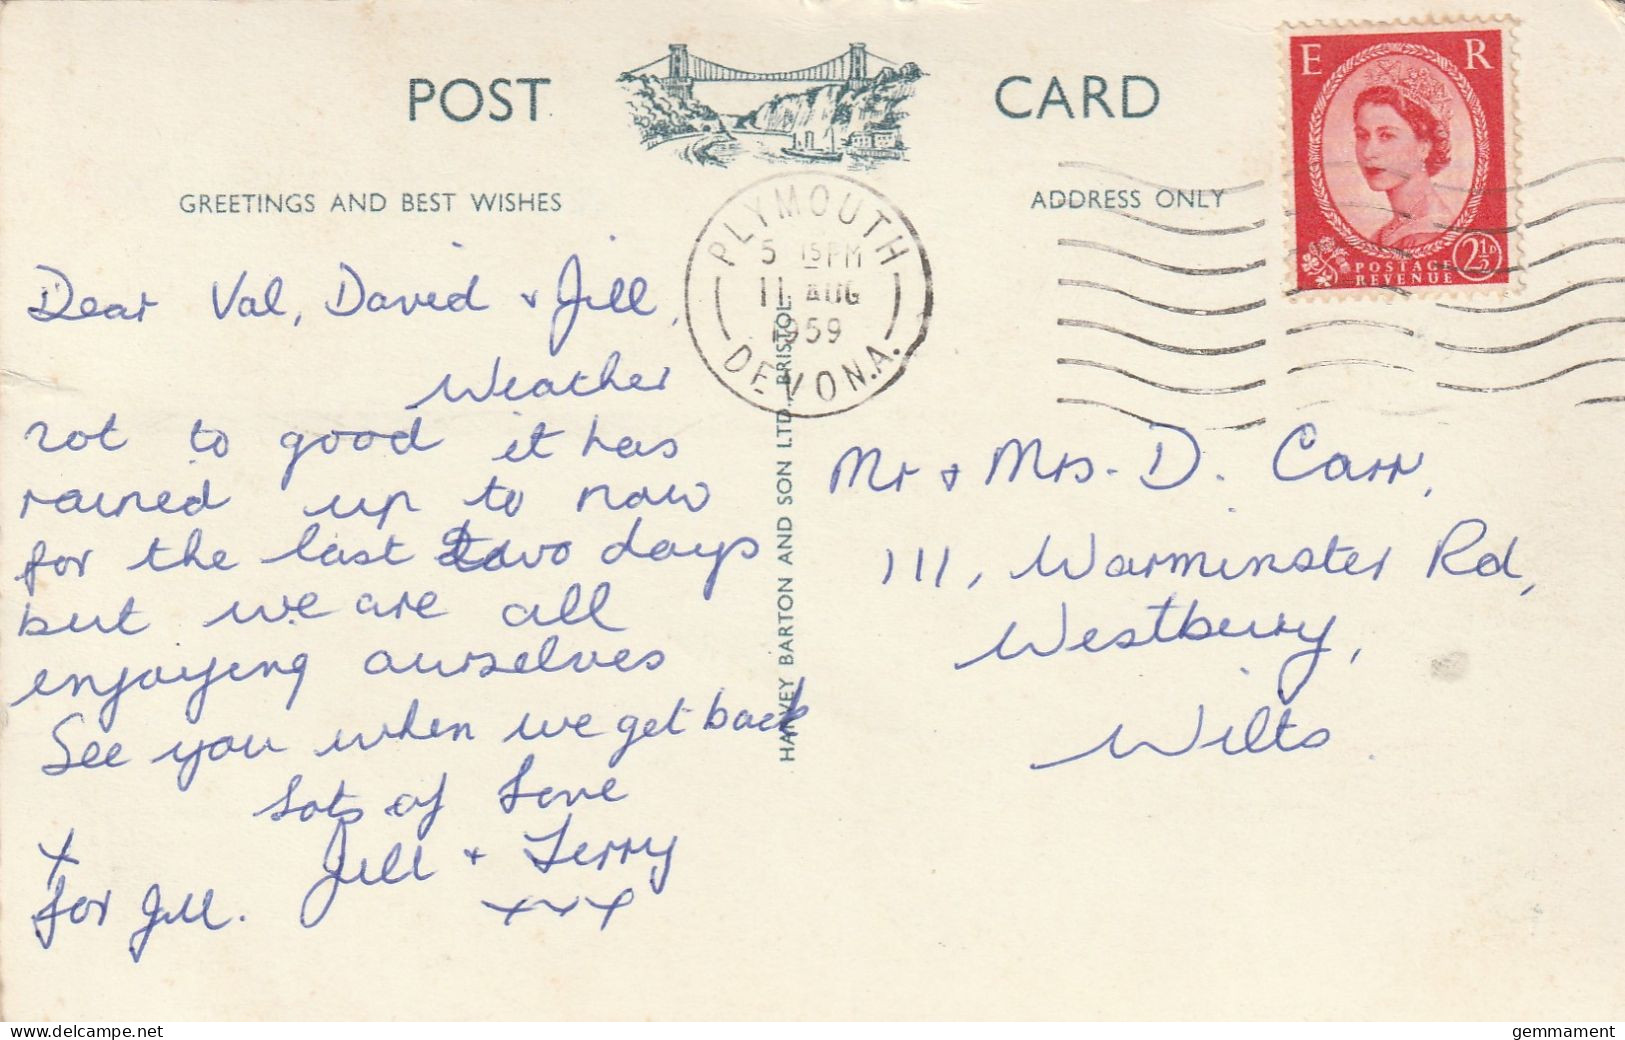 POST CARD
GREETINGS AND BEST WISHES
ADDRESS ONLY
E R
POSTAGE
REVENUE
2½D
PLYMOUTH
5 15PM
11 AUG
1959
DEVON.A.
HARVEY BARTON AND SON LTD. BRISTOL
Dear Val, David + Jill,
Weather
not to good it has
rained up to now
for the last two days
but we are all
enjoying ourselves
See you when we get back
Lots of Love
Jill + Terry
x
for Jill.
xxx
Mr + Mrs. D. Carr,
111, Warminster Rd,
Westbury,
Wilts.
www.delcampe.net
gemmament